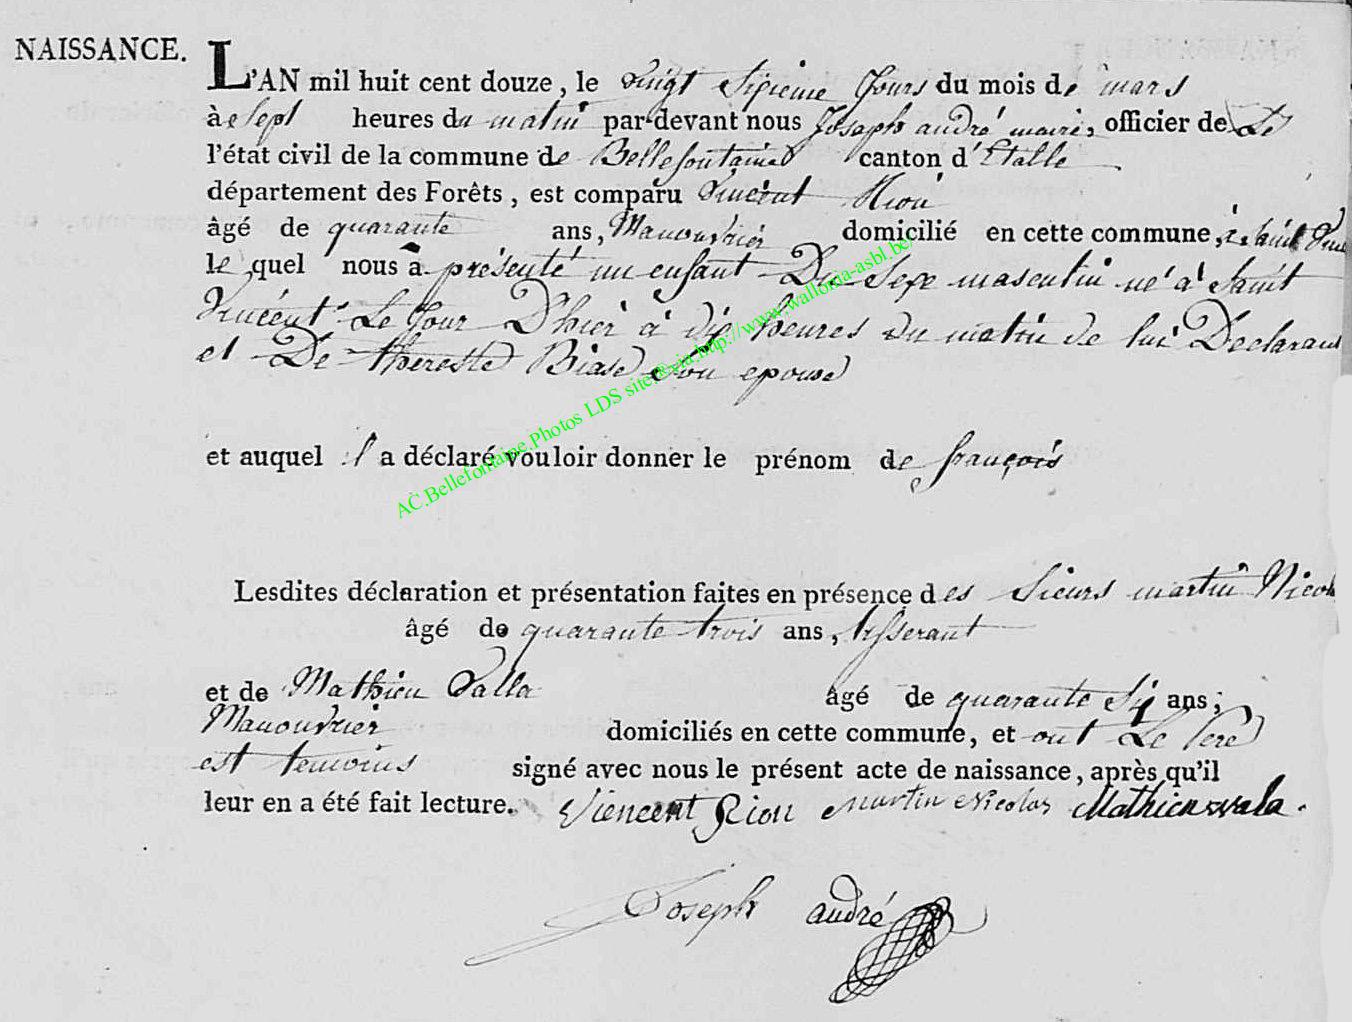 NAISSANCE.
L'AN mil huit cent douze, le vingt sixieme Jours du mois de mars
à sept heures du matin par-devant nous Joseph andré maire, officier de Le
l'état civil de la commune de Bellefontaine canton d'Etalle
département des Forêts, est comparu Vincent Rion
âgé de quarante ans, Manouvrier domicilié en cette commune, à Saint
le quel nous a présenté un enfant Du Sexe masculin né à Saint
Vincent Le Jour D'hier à dix heures du matin de lui Declarant
et De thereste Biase son epouse
et auquel il a déclaré vouloir donner le prénom de françois
Lesdites déclaration et présentation faites en présence des Sieurs martin Nicola
âgé de quarante trois ans, tisserant
et de Mathieu Valla âgé de quarante Six ans;
Manouvrier domiciliés en cette commune, et ont Le Pere
est temoins signé avec nous le présent acte de naissance, après qu'il
leur en a été fait lecture. Viencent Rion Martin Nicolas Mathieu wala.
Joseph andré
AC.Bellefontaine.Photos LDS site&via http://www.wallonia-asbl.be/